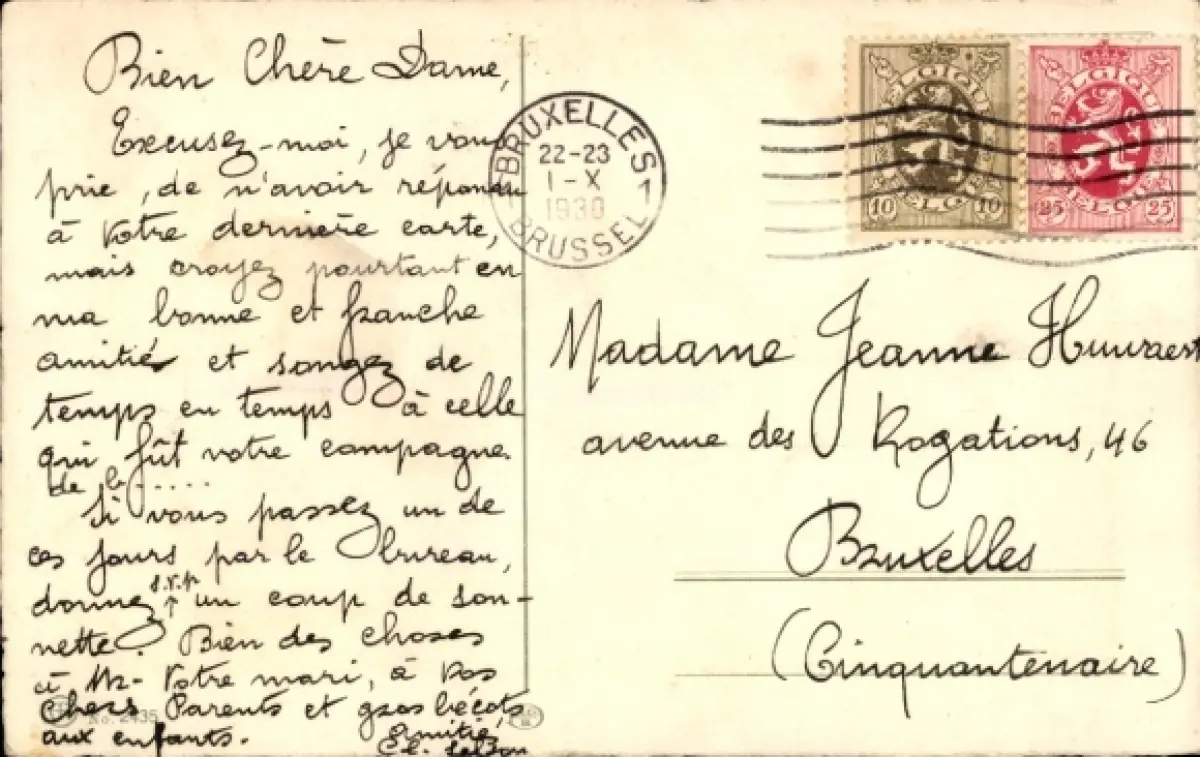 Bien Chère Dame,
Excusez-moi, je vous
prie, de n'avoir répondu
à Votre dernière carte,
mais croyez pourtant en
ma bonne et franche
amitié et songez de
temps en temps à celle
qui fût votre compagne
de b.....
Si vous passez un de
ces jours par le bureau,
donnez s.v.p. un coup de son-
nette. Bien des choses
à Mr- Votre mari, à Vos
Chers Parents et gros bécots
aux enfants.
Amitiés
No. 2435
BRUXELLES 1
22-23
1-X
1930
1 BRUSSEL
BELGIQUE
10 BELGIE 10
BELGIQUE
25 BELGIE 25
Madame Jeanne
avenue des Rogations, 46
Bruxelles
(Cinquantenaire)